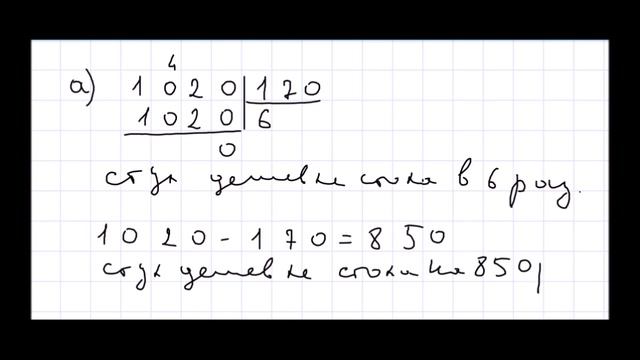 4
а) 1 0 2 0 1 7 0
1 0 2 0 6
0
стул дешевле стола в 6 раз.
1 0 2 0 - 1 7 0 = 8 5 0
стул дешевле стола на 850р